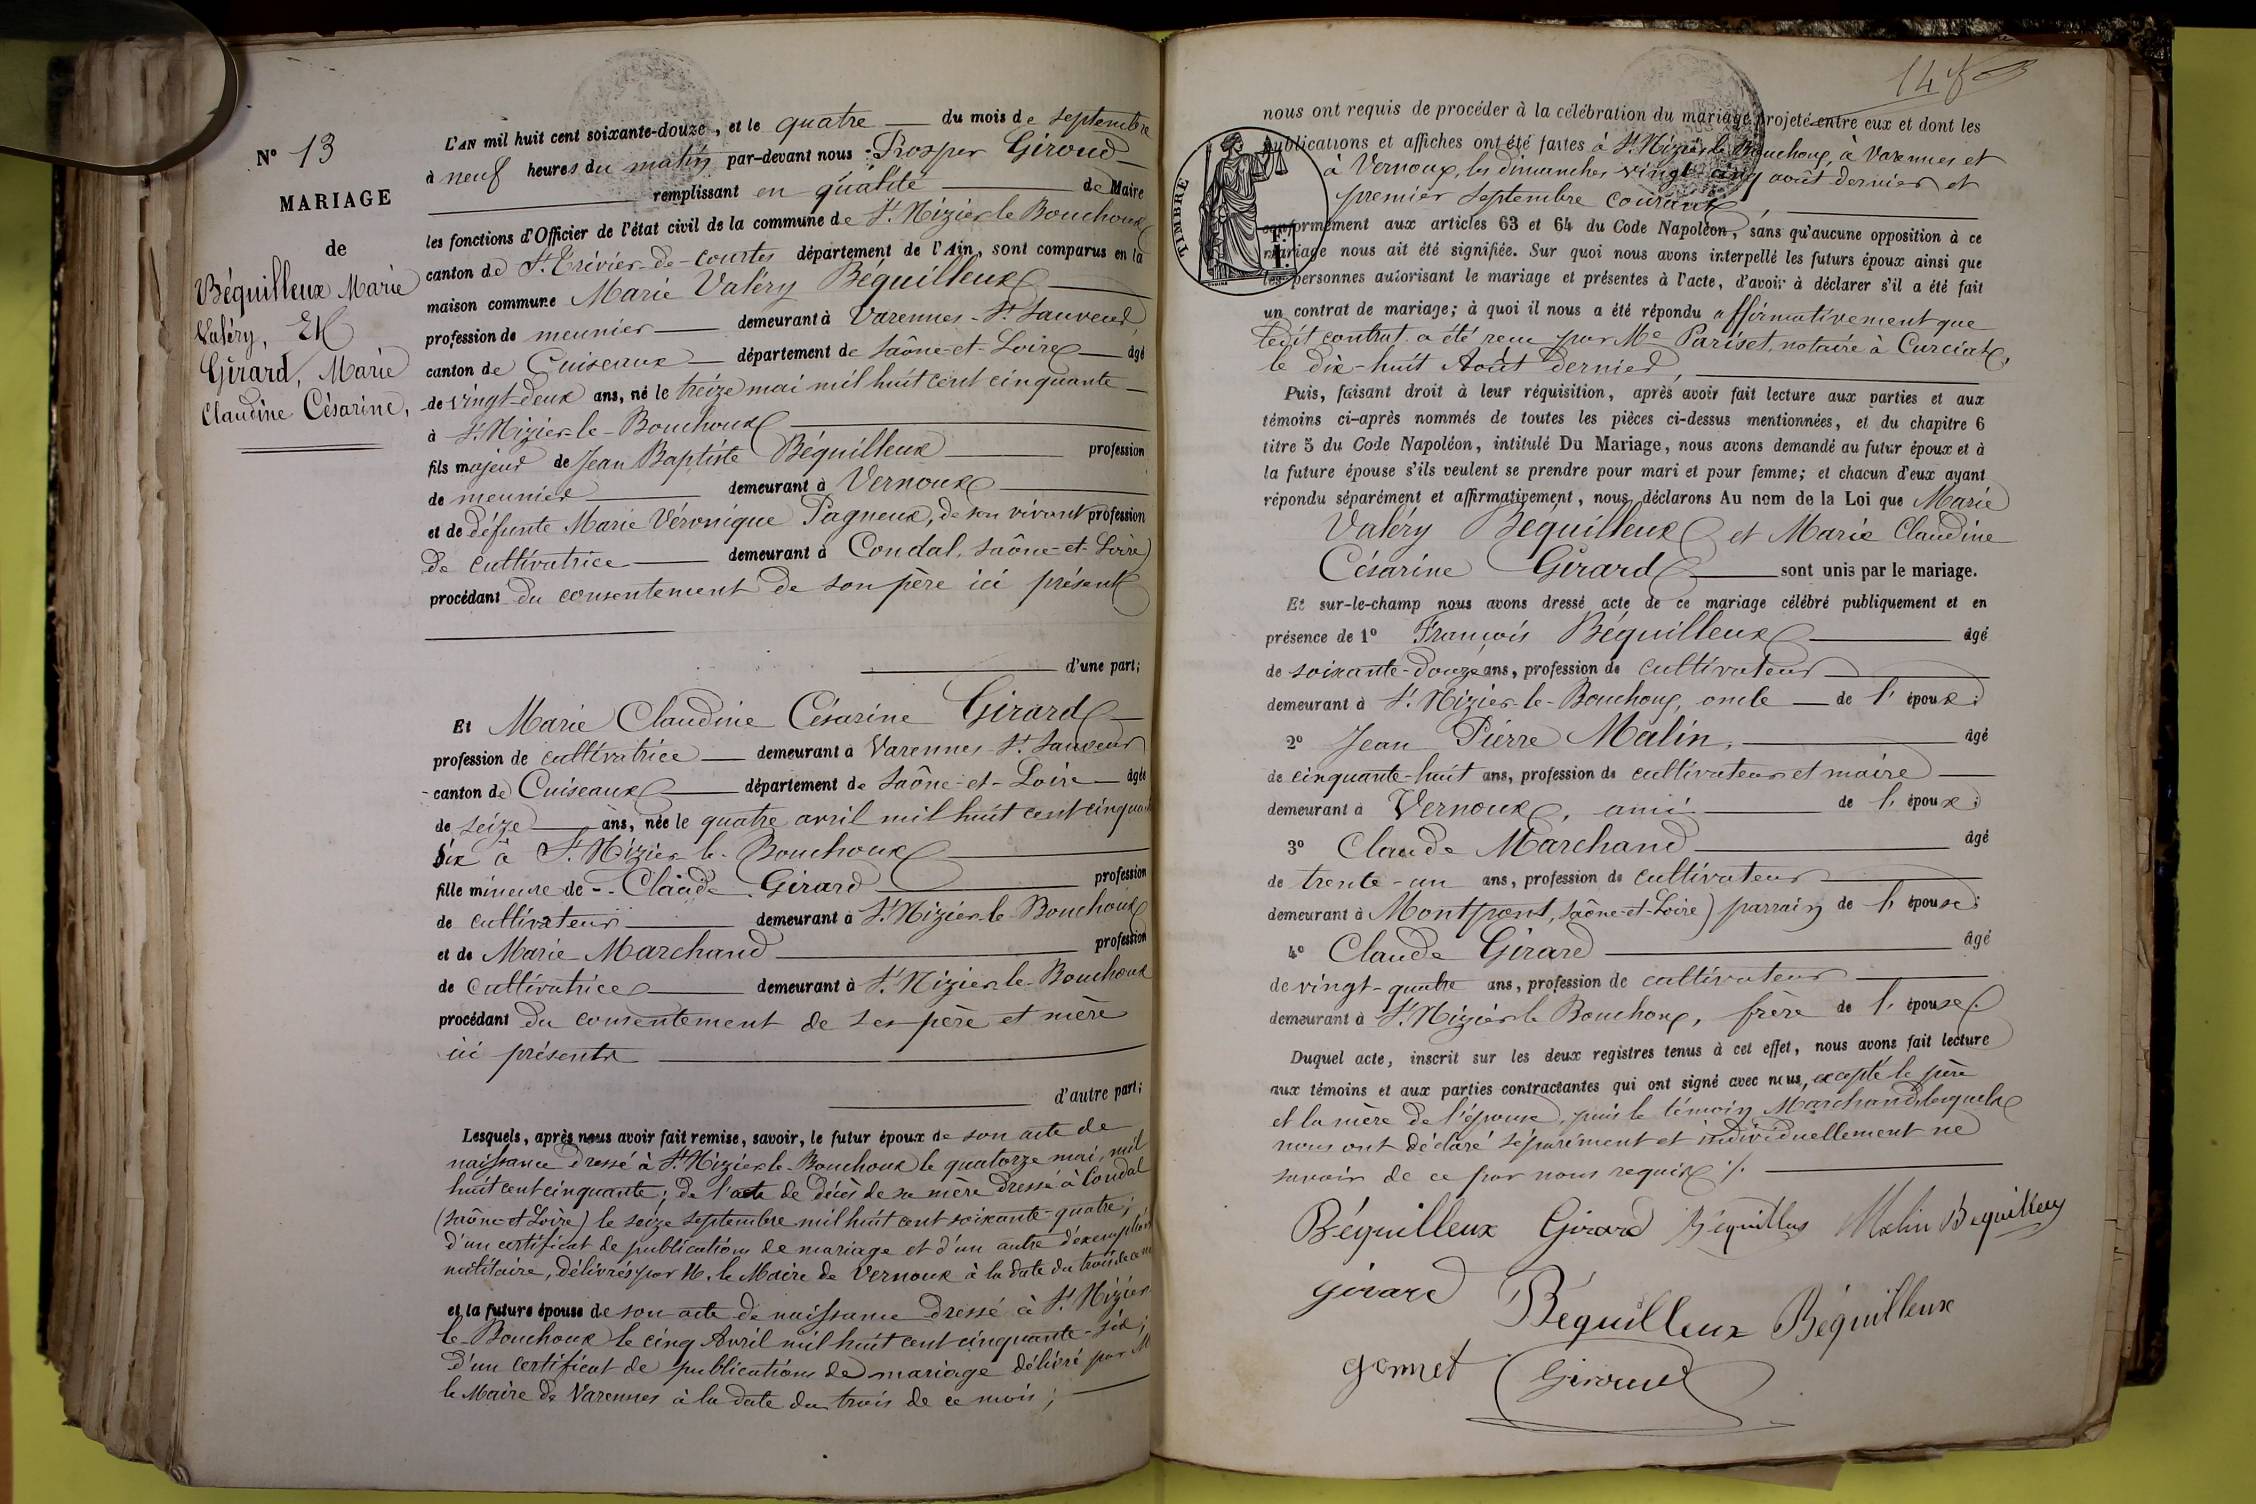 N° 13
MARIAGE
de
Béquilleux Marie
Valéry, Et
Girard, Marie
Claudine Césarine,
L'AN mil huit cent soixante-douze, et le quatre du mois de septembre
à neuf heures du matin par-devant nous Prosper Giroud
remplissant en qualité de Maire
les fonctions d'Officier de l'état civil de la commune de St. Nizier-le-Bouchoux
canton de St. Trivier-de-Courtes département de l'Ain, sont comparus en la
maison commune Marie Valéry Béquilleux
profession de meunier demeurant à Varennes-St. Sauveur
canton de Cuiseaux département de Saône-et-Loire âgé
de vingt-deux ans, né le treize mai mil huit cent cinquante
à St. Nizier-le-Bouchoux
fils majeur de Jean Baptiste Béquilleux profession
de meunier demeurant à Vernoux
et de défunte Marie Véronique Pagneux, de son vivant profession
de cultivatrice demeurant à Condal, Saône-et-Loire)
procédant du consentement de son père ici présent
d'une part;
Et Marie Claudine Césarine Girard
profession de cultivatrice demeurant à Varennes-St. Sauveur
canton de Cuiseaux département de Saône-et-Loire âgée
de seize ans, née le quatre avril mil huit cent cinquante
six à St. Nizier-le-Bouchoux
fille mineure de Claude Girard profession
de cultivateur demeurant à St. Nizier-le-Bouchoux
et de Marie Marchand profession
de cultivatrice demeurant à St. Nizier-le-Bouchoux
procédant du consentement de ses père et mère
ici présents
d'autre part;
Lesquels, après nous avoir fait remise, savoir, le futur époux de son acte de
naissance dressé à St. Nizier-le-Bouchoux le quatorze mai, mil
huit cent cinquante; de l'acte de décès de sa mère dressé à Condal
(Saône-et-Loire) le seize septembre mil huit cent soixante-quatre;
d'un certificat de publications de mariage et d'un autre d'exemption
militaire, délivrés par M. le Maire de Vernoux à la date du trois de ce m
et la future épouse de son acte de naissance dressé à St. Nizier
le-Bouchoux le cinq Avril mil huit cent cinquante-six;
d'un certificat de publications de mariage délivré par M
le Maire de Varennes à la date du trois de ce mois;
TIMBRE
nous ont requis de procéder à la célébration du mariage projeté entre eux et dont les
publications et affiches ont été faites à St. Nizier-le-Bouchoux, à Varennes et
à Vernoux, les dimanches vingt-cinq août dernier et
premier Septembre courant,
conformément aux articles 63 et 64 du Code Napoléon, sans qu'aucune opposition à ce
mariage nous ait été signifiée. Sur quoi nous avons interpellé les futurs époux ainsi que
les personnes autorisant le mariage et présentes à l'acte, d'avoir à déclarer s'il a été fait
un contrat de mariage; à quoi il nous a été répondu affirmativement que
ledit contrat a été reçu par Me Pariset, notaire à Curciat,
le dix-huit Août dernier,
Puis, faisant droit à leur réquisition, après avoir fait lecture aux parties et aux
témoins ci-après nommés de toutes les pièces ci-dessus mentionnées, et du chapitre 6
titre 5 du Code Napoléon, intitulé Du Mariage, nous avons demandé au futur époux et à
la future épouse s'ils veulent se prendre pour mari et pour femme; et chacun d'eux ayant
répondu séparément et affirmativement, nous déclarons Au nom de la Loi que Marie
Valéry Béquilleux et Marie Claudine
Césarine Girard sont unis par le mariage.
Et sur-le-champ nous avons dressé acte de ce mariage célébré publiquement et en
présence de 1° François Béquilleux âgé
de soixante-douze ans, profession de cultivateur
demeurant à St. Nizier-le-Bouchoux, oncle de l'époux;
2° Jean Pierre Malin, âgé
de cinquante-huit ans, profession de cultivateur et maire
demeurant à Vernoux, ami de l'époux;
3° Claude Marchand âgé
de trente-un ans, profession de cultivateur
demeurant à Montpont, Saône-et-Loire) parrain de l'épouse;
4° Claude Girard âgé
de vingt-quatre ans, profession de cultivateur
demeurant à St. Nizier-le-Bouchoux, frère de l'épouse.
Duquel acte, inscrit sur les deux registres tenus à cet effet, nous avons fait lecture
aux témoins et aux parties contractantes qui ont signé avec nous, excepté le père
et la mère de l'épouse, puis le témoin Marchand, lesquels
nous ont déclaré séparément et individuellement ne
savoir de ce par nous requis ./.
Béquilleux Girard Béquilleux Malin Béquilleux
Girard Béquilleux Béquilleux
Gonnet Giroud